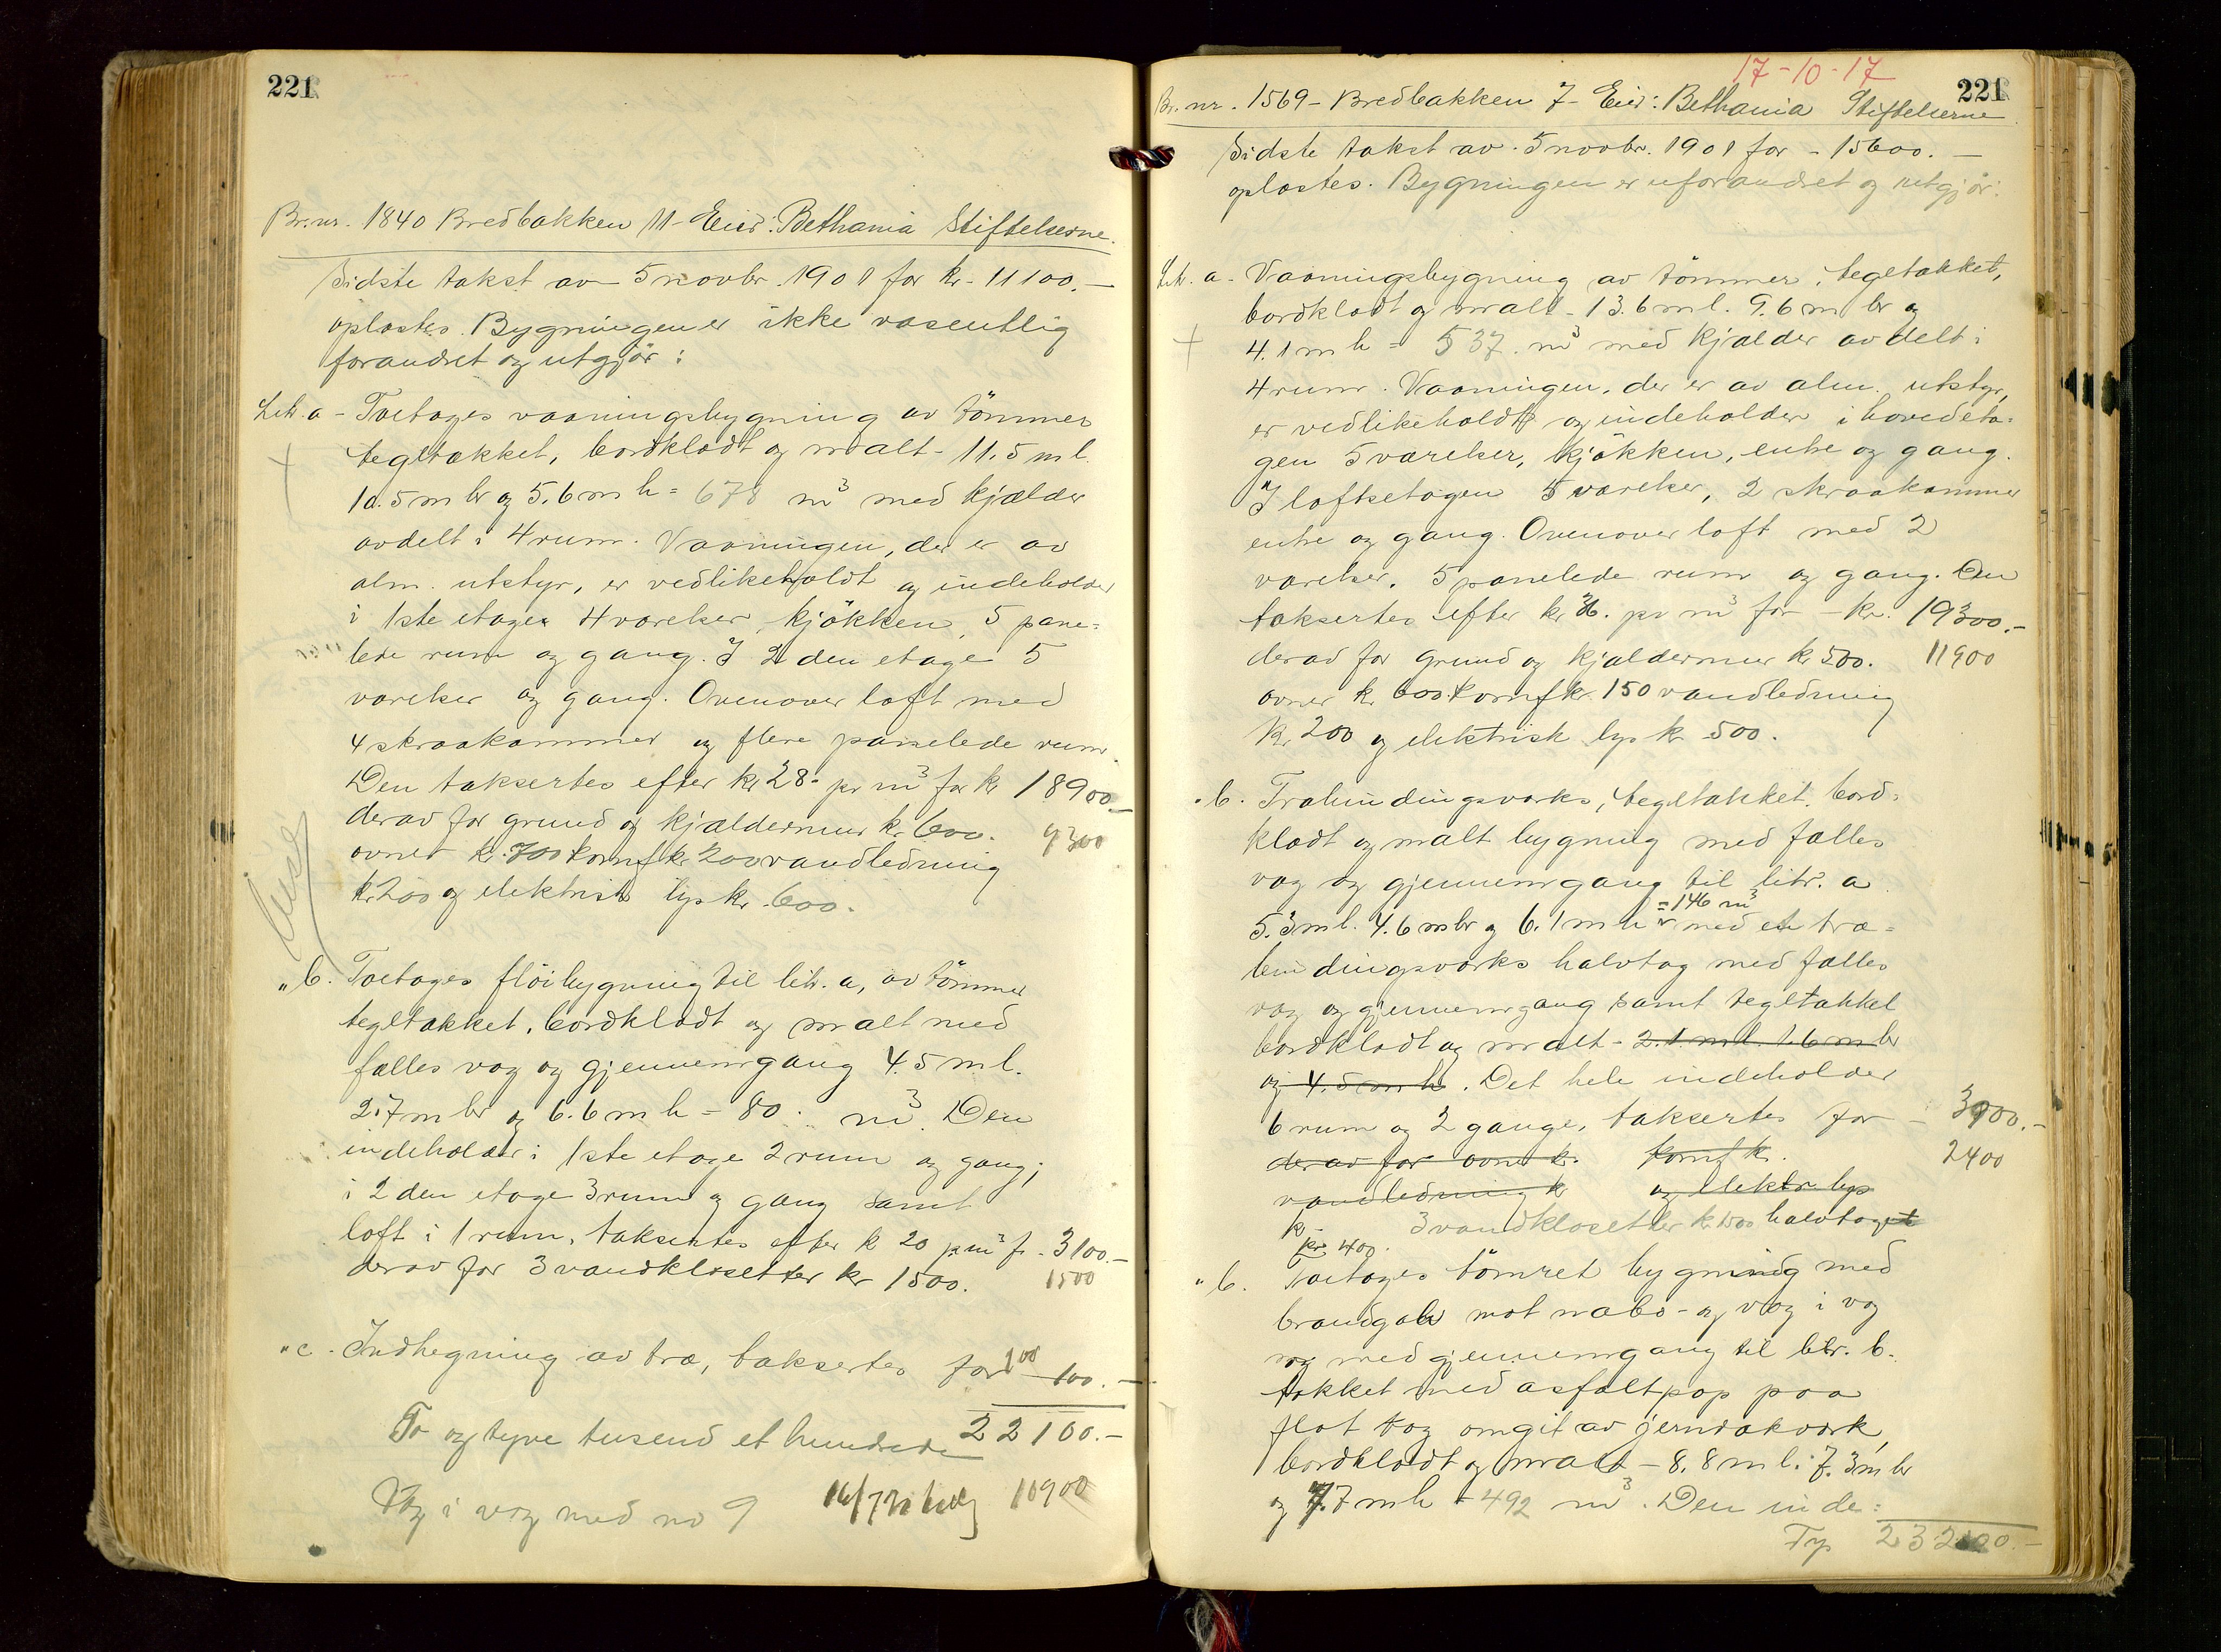 221
Br. nr. 1840 Bredbakken 11 - Eier: Bethania Stiftelserne.
Sidste takst av 5 novbr. 1901 for kr. 11100.-
oplæstes. Bygningen er ikke væsentlig
forandret og utgjør:
Litr. a - Toetages vaaningsbygning av tømmer
tegltækket, bordklædt og malt - 11.5 m l.
10.5 m br og 5.6 m h = 678 m³ med kjælder
avdelt i 4 rum. Vaaningen, der er av
alm. utstyr, er vedlikeholdt og indeholder
i 1ste etage 4 værelser, kjøkken, 5 pane-
lede rum og gang. I 2den etage 5
værelser og gang. Ovenover loft med
4 skraakammer og flere panelede rum.
Den taksertes efter kr 28.- pr m³ for kr 18900.-
derav for grund og kjældermur kr. 600. 9300
ovner kr. 700 komf kr. 200 vandledning
kr 200 og elektrisk lys kr. 600.
" b. Toetages fløibygning til litr. a, av tømmer
tegltækket, bordklædt og malt med
fælles væg og gjennemgang 4.5 m l.
2.7 m br og 6.6 m h = 80 m³. Den
indeholder i 1ste etage 2 rum og gang;
i 2den etage 3 rum og gang samt
loft i 1 rum, taksertes efter kr 20 pr m³ fr - 3100.-
derav for 3 vandklosetter kr 1500. 1500
" c. Indhegning av træ, taksertes for 100 100.-
To og tyve tusend et hundrede 22100.-
Væg i væg med no 9 10900
17-10-17
221
Br. nr. 1569 - Bredbakken 7 - Eier: Bethania Stiftelserne
Sidste takst av 5 novbr. 1901 for - 15600.-
oplæstes. Bygningen er uforandret og utgjør:
Litr. a - Vaaningsbygning av tømmer, tegltækket,
bordklædt og malt - 13.6 m l. 9.6 m br og
4.1 m h = 537 m³ med kjælder avdelt i
4 rum. Vaaningen, der er av alm. utstyr,
er vedlikeholdt og indeholder i hovedeta-
gen 5 værelser, kjøkken, entre og gang.
I loftsetagen 5 værelser, 2 skraakammer
entre og gang. Ovenover loft med 2
værelser, 5 panelede rum og gang. Den
taksertes efter kr 36. pr m³ for - kr. 19300.-
derav for grund og kjældermur kr 500. 11900
ovner kr 600 komf kr. 150 vandledning
kr 200 og elektrisk lys kr 500.
" b. Træbindingsværks, tegltækket, bord-
klædt og malt bygning med fælles
væg og gjennemgang til litr. a
= 146 m³
5.3 m l. 4.6 m br og 6.1 m h med et træ-
bindingsværks halvtag med fælles
væg og gjennemgang samt tegltækket
bordklædt og malt - 2.1 m l. 1.6 m br
og 4.5 m h. Det hele indeholder
6 rum og 2 gange, taksertes for - 3900.-
derav for ovne kr. komf kr. 2400
vandledning kr og elektr lys
kr - 3 vandklosetter kr. 1500 halvtaget
kr 400.
" b. Toetages tømret bygning med
brandgavl mot nabo - og væg i væg
og med gjennemgang til litr. b.
tækket med asfaltpap paa
flat tag omgit av jernrækværk,
bordklædt og malt - 8.8 m l. 7.3 m br
og 7.7 m h = 492 m³. Den inde-
Tp 23200.-